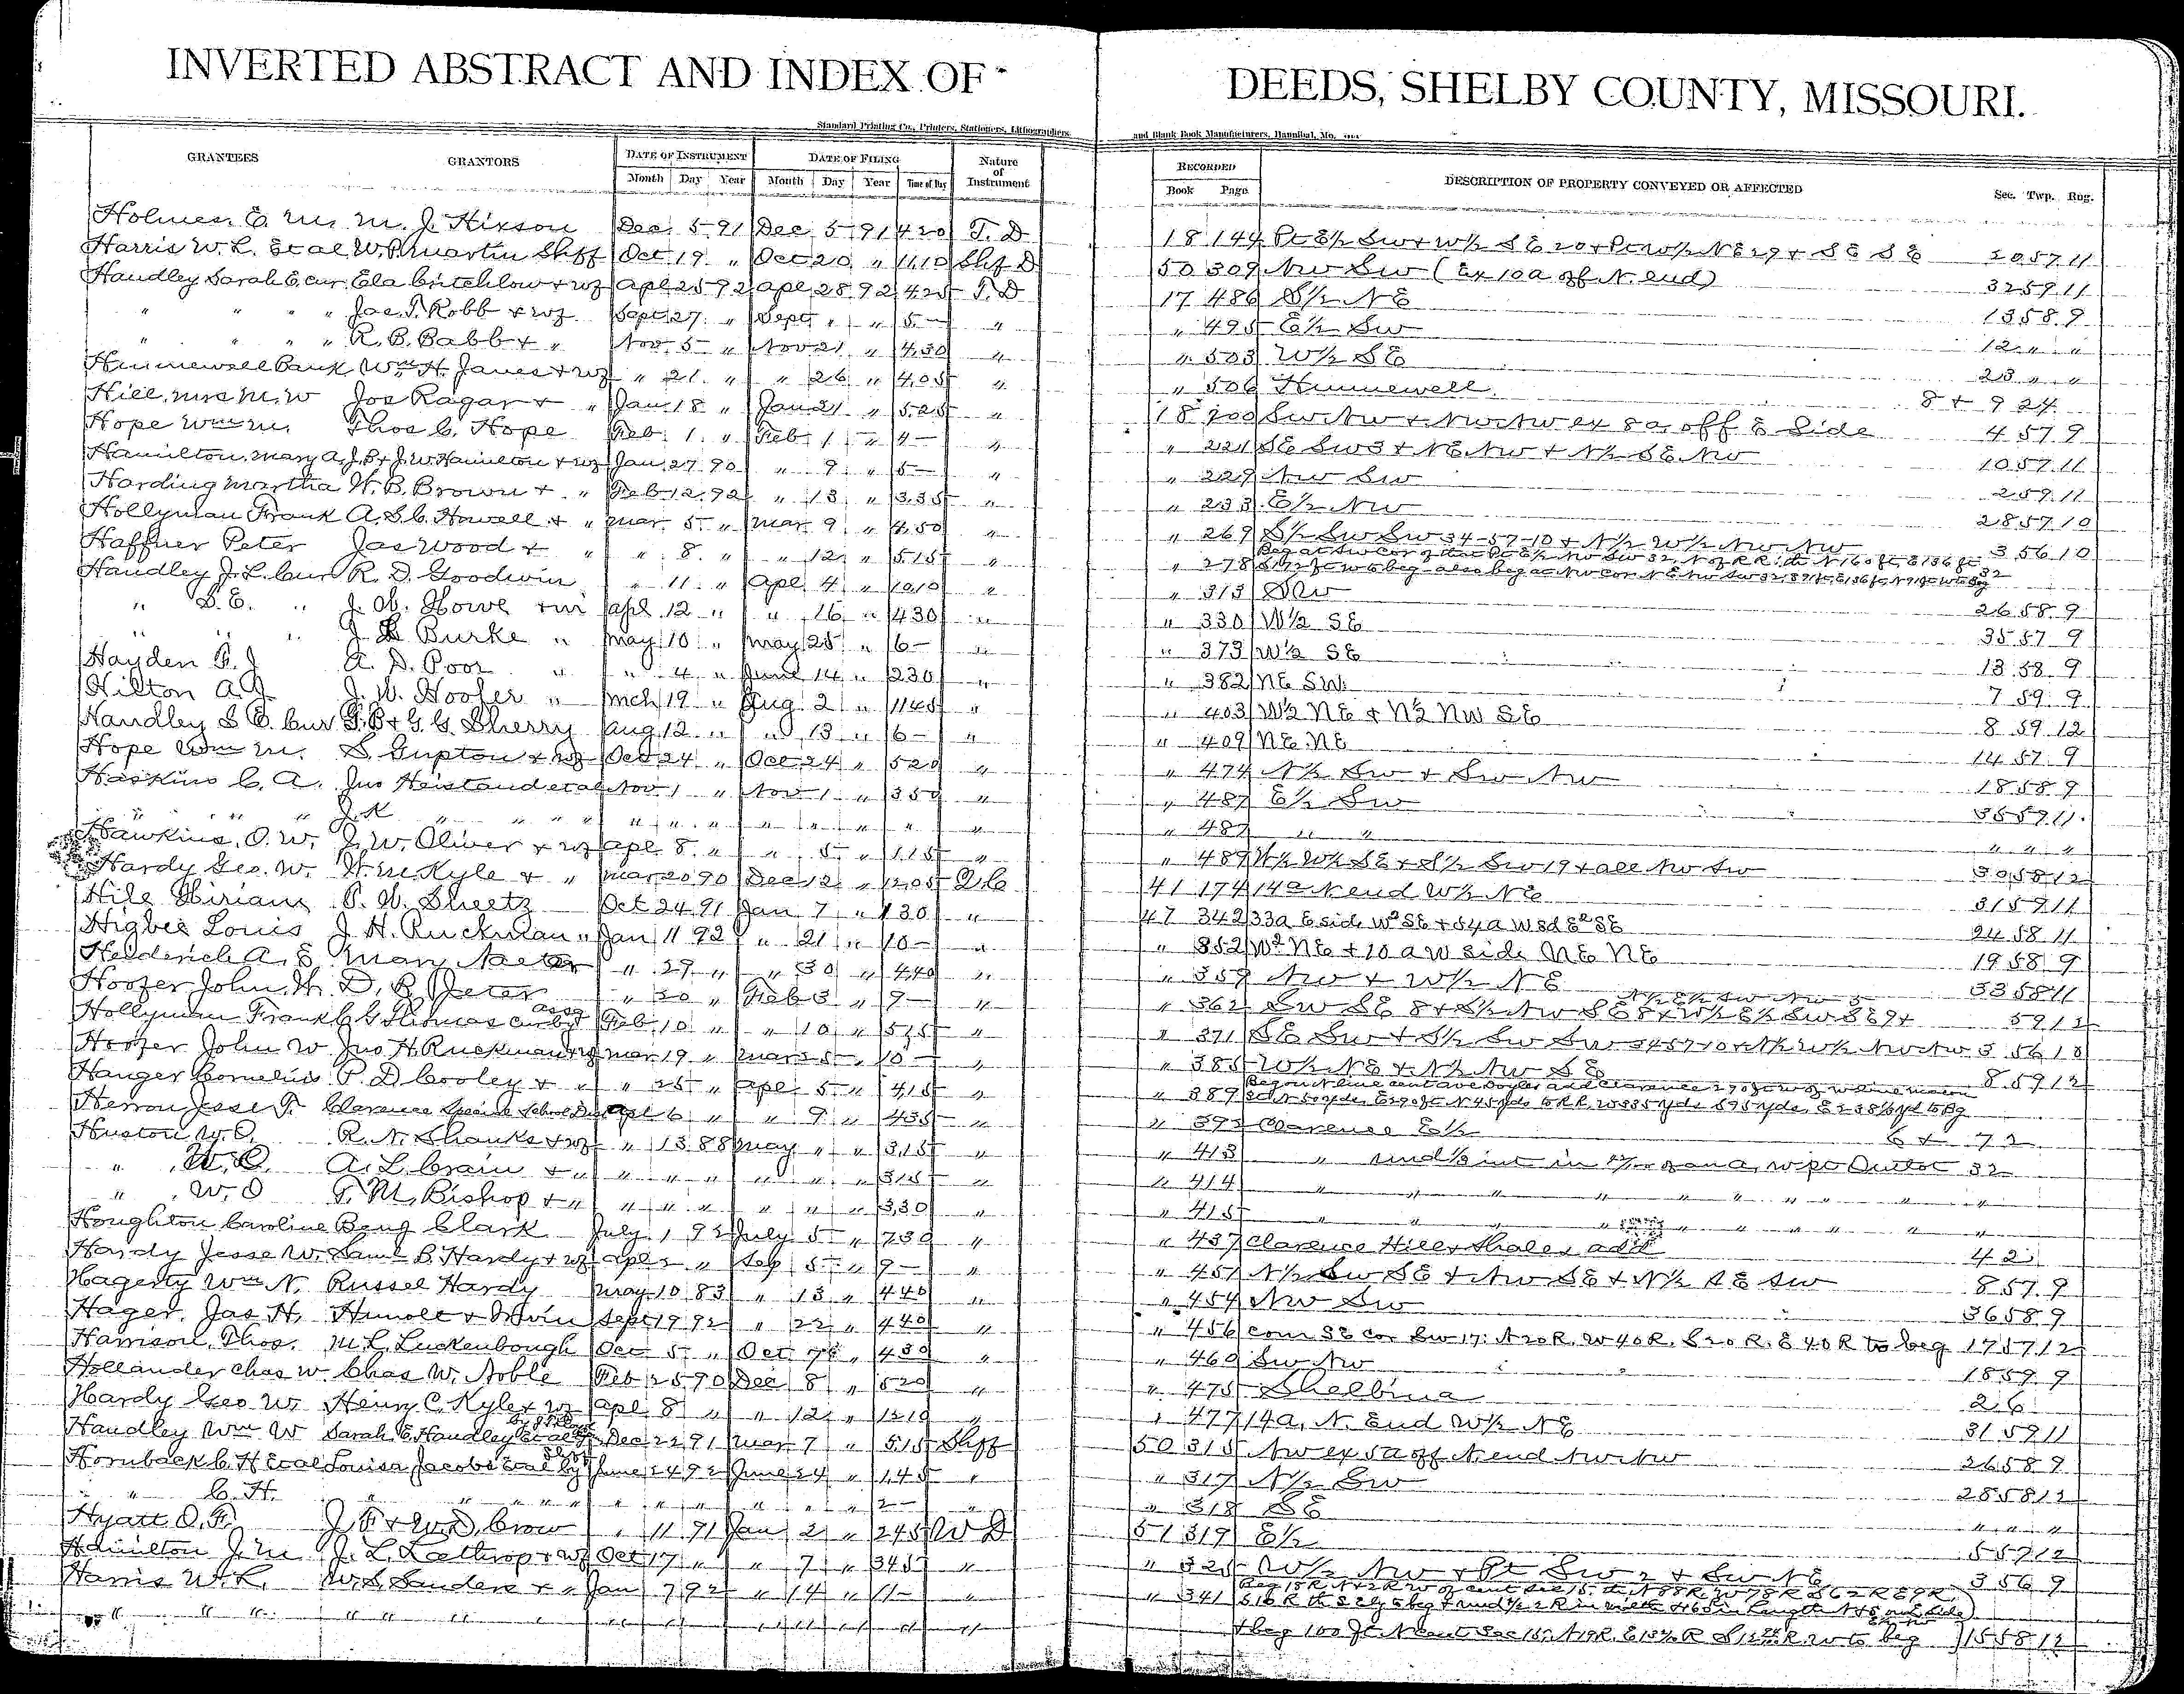 INVERTED ABSTRACT AND INDEX OF DEEDS, SHELBY COUNTY, MISSOURI.
Standard Printing Co., Printers, Stationers, Lithographers and Blank Book Manufacturers, Hannibal, Mo.
GRANTEES GRANTORS DATE OF INSTRUMENT DATE OF FILING Nature of Instrument RECORDED DESCRIPTION OF PROPERTY CONVEYED OR AFFECTED Sec. Twp. Rng.
Month Day Year Month Day Year Time of Day Book Page
Holmes E. M. M. J. Hixson Dec 5 91 Dec 5 91 4 20 T. D 18 144 Pt E½ Sw & W½ SE 20 & Pt W½ NE 29 & SE SE 20 57 11
Harris W. L. et al W. P. Martin Shff Oct 19 " Oct 20 " 11 10 Shf D 50 309 Nw Sw (Ex 10a off N. end) 32 59 11
Handley Sarah E. cur Ela Critchlow & wf apl 25 92 apl 28 92 4 25 T. D 17 486 S½ NE 13 58 9
" " " " Jas. T. Robb & wf Sept 27 " Sept " " 5 - " " 495 E½ Sw 12 " "
" " " " R. B. Babb & " Nov 5 " Nov 21 " 4 30 " " 503 W½ SE 23 " "
Hunnewell Bank Wm H. Janes & wf " 21 " " 26 " 4 05 " " 506 Hunnewell 8 & 9 24
Hill, Mrs M. W Jos Ragar & " Jan 18 " Jan 21 " 5 25 " 18 200 Sw Nw & Nw Nw ex 8a off E Side 4 57 9
Hope Wm M. Thos C. Hope Feb 1 " Feb 1 " 4 - " " 221 SE Sw 3 & NE Nw & N½ SE Nw 10 57 11
Hamilton, Mary A. J. B & J. W. Hamilton & wf Jan 27 90 " 9 " 5 - " " 229 Nw Sw 2 59 11
Harding Martha W. B. Brown & " Feb 12 92 " 13 " 3 35 " " 233 E½ Nw 28 57 10
Hollyman Frank A. S. C. Howell & " Mar 5 " Mar 9 " 4 50 " " 269 S½ Sw Sw 34-57-10 & N½ W½ Nw Nw 3 56 10
Haffner Peter Jas Wood & " " 8 " " 12 " 5 15 " " 278
Handley J. L. Cur R. D. Goodwin " 11 " Apl 4 " 10 10 " " 313 SNw 26 58 9
" S. E. " J. W. Howe & wi apl 12 " " 16 " 4 30 " " 330 W½ SE 35 57 9
" " " J. L Burke " May 10 " May 25 " 6 - " " 373 W½ SE 13 58 9
Hayden F. J A. D. Poor " " 4 " June 14 " 2 30 " " 382 NE SW 7 59 9
Hilton A. J. J. W. Hoofer " Mch 19 " Aug 2 " 11 45 " " 403 W½ NE & N½ NW SE 8 59 12
Handley S E. Cur G. B & G. G. Sherry Aug 12 " " 13 " 6 - " " 409 NE NE 14 57 9
Hope Wm M. S. Gupton & wf Oct 24 " Oct 24 " 5 20 " " 474 N½ Sw & Sw Nw 18 58 9
Haskins C. A. Jno Heistand et al Nov 1 " Nov 1 " 3 50 " " 487 E½ Sw 36 59 11
" " " J. K " " " " " " " " " " " " " 487 " " " " "
Hawkins, O. W. J. W. Oliver & wf apl 8 " " 5 " 1 15 " " 489 N½ W½ SE & S½ Sw 19 & all Nw Sw 30 58 12
Hardy Geo. W. H. M Kyle & " Mar 20 90 Dec 12 " 12 05 Q. C 41 174 14a N end W½ NE 31 59 11
Hile Hiriam P. W. Sheetz Oct 24 91 Jan 7 " 1 30 " 47 342 33a E side W² SE & 54a W sd E² SE 24 58 11
Higbee Louis J. H. Ruckman " Jan 11 92 " 21 " 10 - " " 352 W² NE & 10 a W side NE NE 19 58 9
Heiderich A. E Mary Naeter " 29 " " 30 " 4 40 " " 359 Nw & W½ NE 33 58 11
Hoofer John. W. D. B Jeter " 30 " Feb 3 " 9 - " " 362 Sw SE 8 & S½ Nw SE 8 & W½ E½ Sw SE 9 & 59 12
Hollyman Frank C. G Thomas Cur by assg Feb 10 " " 10 " 5 15 " " 371 SE Sw & S½ Sw Sw 34 57 10 & N½ W½ Nw Nw 3 56 10
Hoofer John W Jno H. Ruckman & wf Mar 19 " Mar 25 " 10 - " " 385 W½ NE & N½ Nw SE 8 59 12
Hanger Cornelius P. D Cooley & " " 25 " Apl 5 " 4 15 " " 389
Herron Jesse T. Clarence Special School Dist Apl 6 " " 9 " 4 35 " " 392 Clarence E½ 6 & 7 2
Huston W. O. R. N. Shanks & wf " 13 88 May " " 3 15 " " 413 " und ⅓ int in of an a, W pt Outlot 32
" W. O. A. L. Crain & " " " " " " " 3 15 " " 414 " " " " " " "
" W. O T. M. Bishop & " " " " " " " 3 30 " " 415 " " " " " " "
Houghton Caroline Benj Clark July 1 92 July 5 " 7 30 " " 437 Clarence Hill & Shales add 4 2
Hardy Jesse W. Saml B. Hardy & wf apl 2 " Sep 5 " 9 - " " 451 N½ Sw SE & Nw SE & N½ SE Sw 8 57 9
Hagerty Wm N. Russel Hardy May 10 83 " 13 " 4 40 " " 454 Nw Sw 36 58 9
Hager Jas H. Hunolt & Irvin Sept 19 92 " 22 " 4 40 " " 456 com SE cor Sw 17. N 20 R. W 40 R. S 20 R. E 40 R to beg 17 57 12
Harrison Thos. M. L. Luckenbough Oct 5 " Oct 7 " 4 30 " " 460 Sw Nw 18 59 9
Hollander Chas W. Chas W. Noble Feb 25 90 Dec 8 " 5 20 " " 475 Shelbina 2 6
Hardy Geo W. Henry C. Kyle & wf apl 8 " " 12 " 12 10 " " 477 14a, N. End W½ NE 31 59 11
Handley Wm W Sarah E Handley et al Dec 22 91 Mar 7 " 5 15 Shff 50 315 Nw ex 5a off N end Nw Nw 26 58 9
Hornback C. H et al Louisa Jacobs et al by Shff June 24 92 June 24 " 1 45 " " 317 N½ Sw 28 58 12
" " C. H. " " " " " " " " " " 2 - " " 318 SE " " "
Hyatt O. F. J. F & W. D. Crow " 11 91 Jan 2 " 2 45 W D 51 319 E½ 5 57 12
Hamilton J. M. J. L. Lathrop & wf Oct 17 " " 7 " 3 45 " " 325 W½ Nw & Pt Sw 2 & Sw NE 3 56 9
Harris W. L. W. S. Sanders & " Jan 7 92 " 14 " 11 - " " 341
" " " " " " " " " " " " " " & beg 100 ft N cent Sec 15, N 19 R. to beg 15 58 12